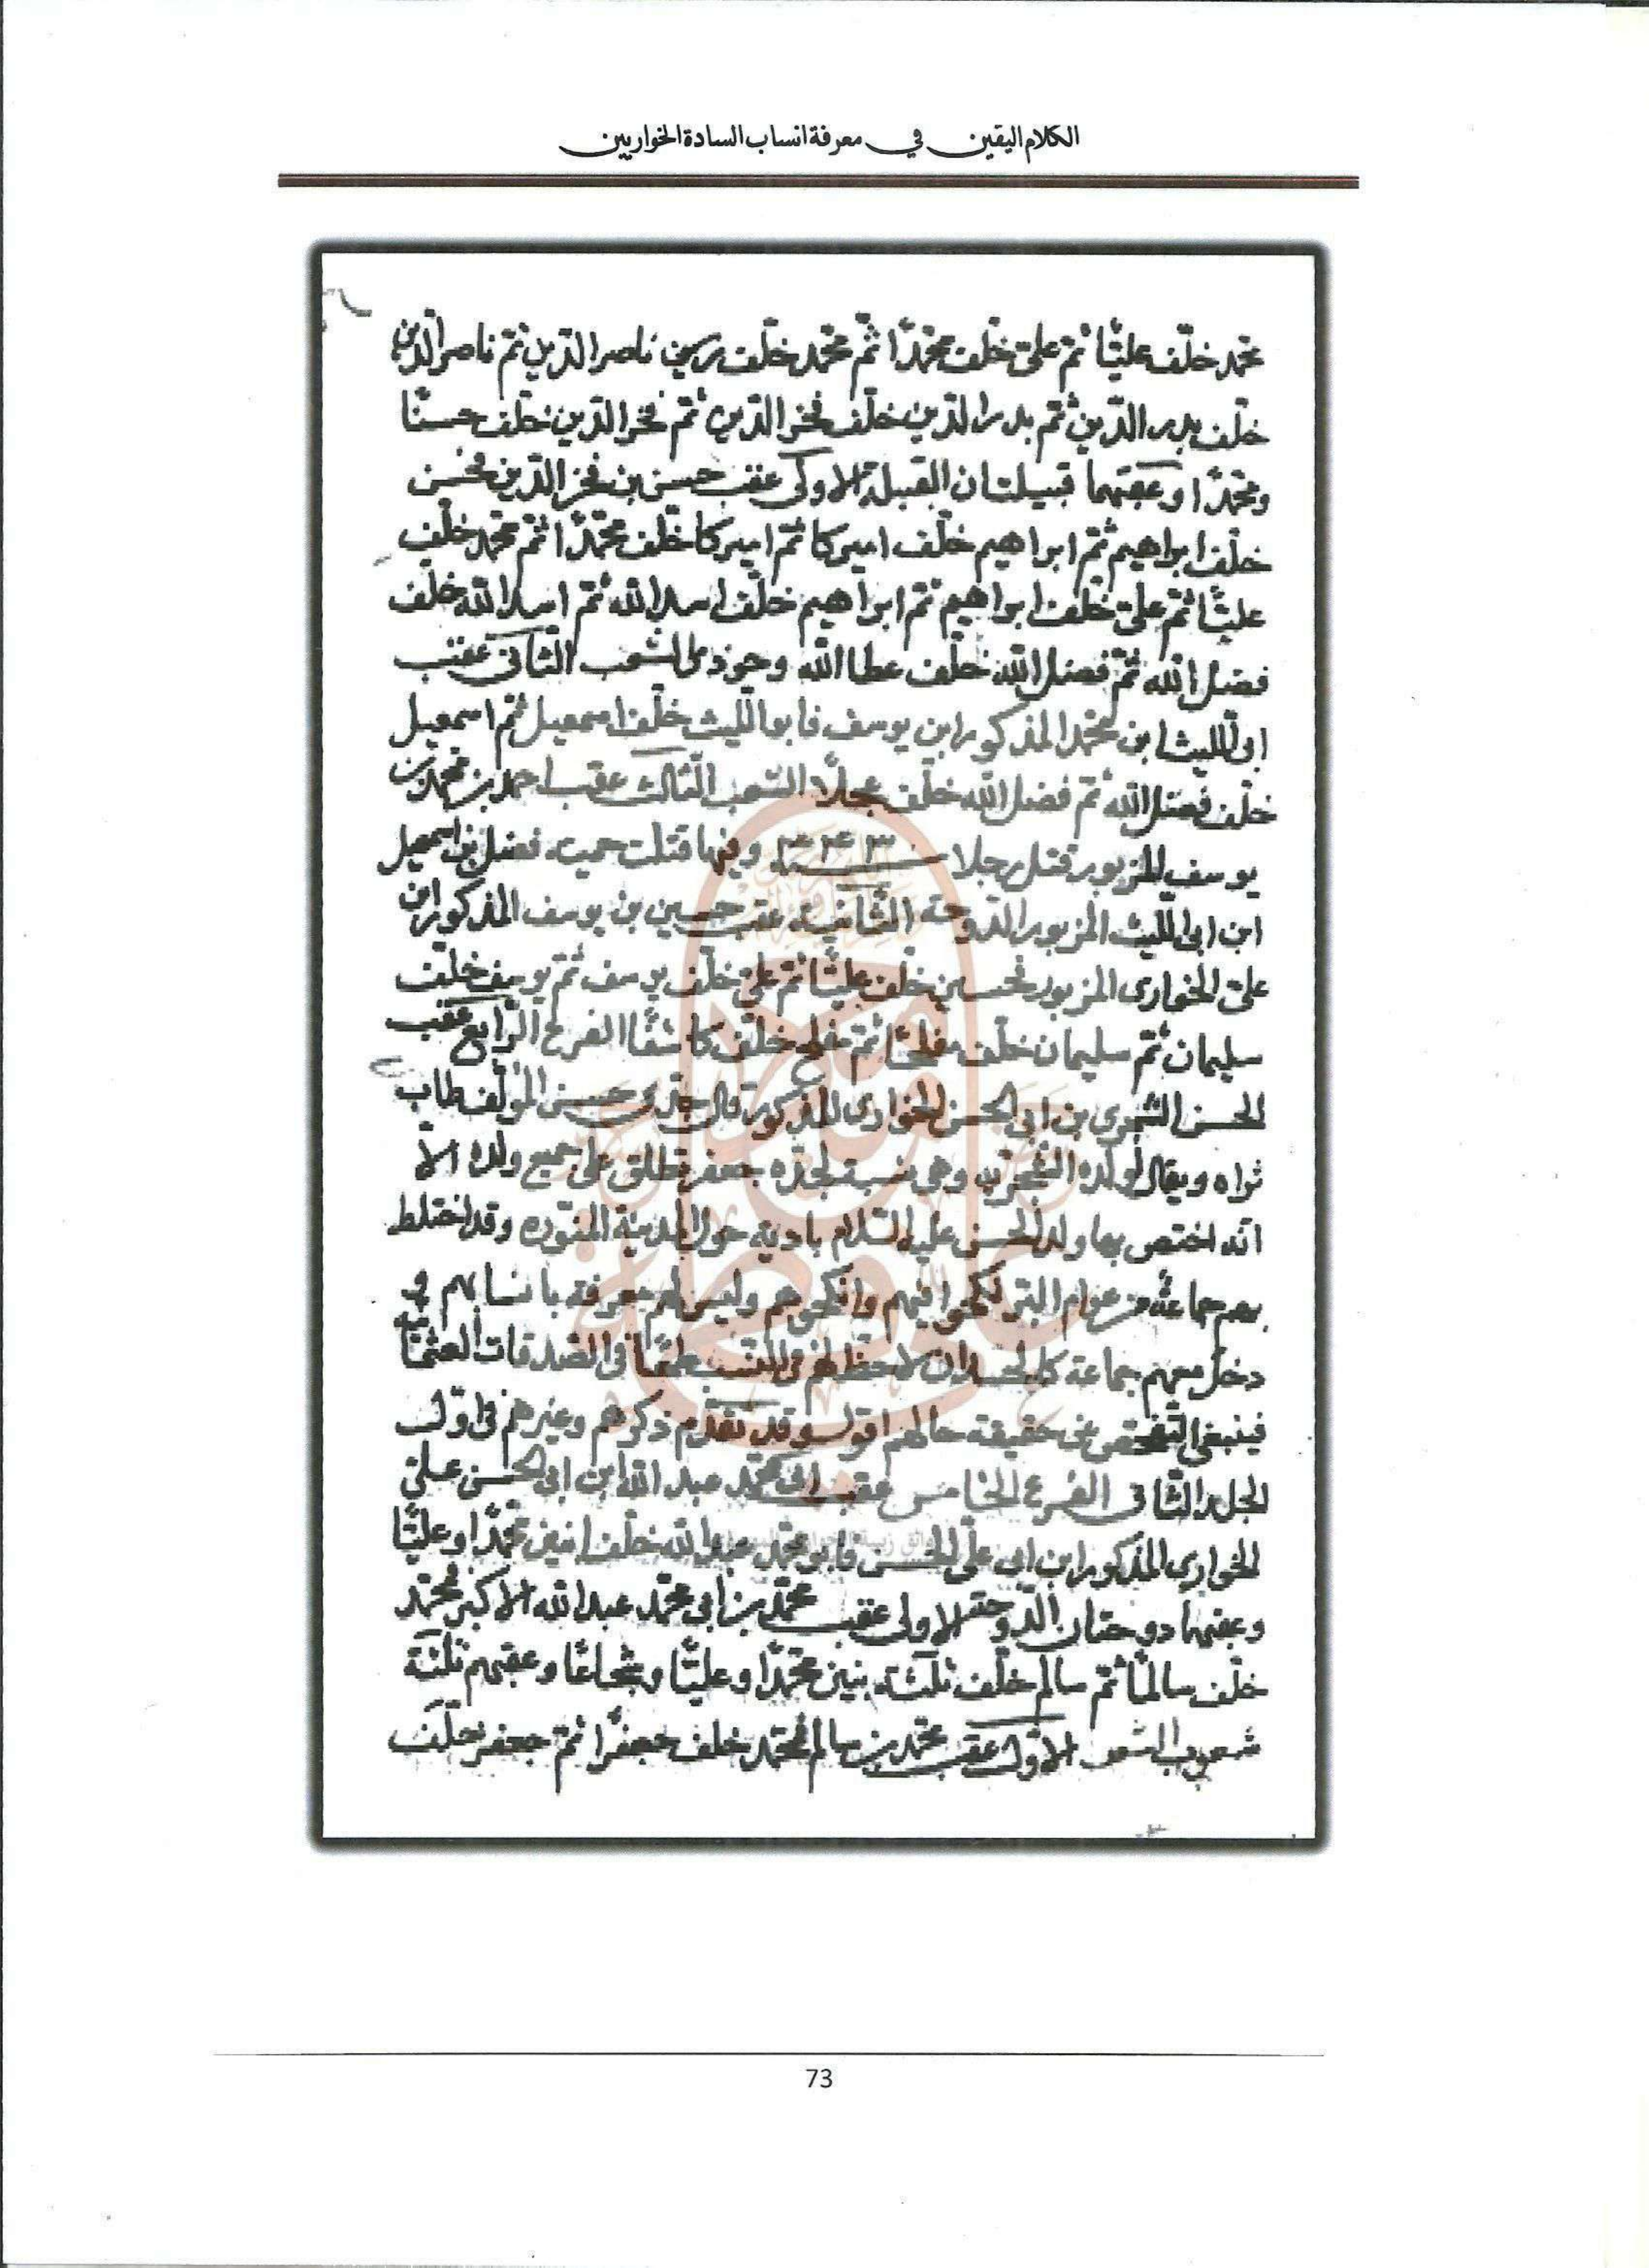 الكلام اليقين في معرفة انساب السادة الخواريين
محمد خلّف عليًّا ثم علي خلّف محمّدًا ثمّ محمّد خلّف ناصر الدّين ثم ناصر الدّين
خلّف بدر الدّين ثم بدر الدّين خلّف فخر الدّين ثم فخر الدين خلّف حسنًا
ومحمّدًا وعقبهما قبيلتان القبيلة الاولى عقب حسن بن فخر الدّين فحسن
خلّف ابراهيم ثمّ ابراهيم خلّف اميركا ثمّ اميركا خلّف محمّدًا ثمّ محمد خلّف
عليًّا ثمّ علي خلّف ابراهيم ثم ابراهيم خلّف اسد الله ثم اسد الله خلّف
فضل الله ثمّ فضل الله خلّف عطا الله الشعب الثّاني عقب
ابي الليث ابن محمّد المذكور ابن يوسف فابو الليث خلّف اسمعيل ثمّ اسمعيل
خلّف فضل الله ثمّ فضل الله خلّف عجلا الشعب الثّالث عقب احمد بن محمّد بن
يوسف المزبور قتل رجلا وفيها قتلت فضل بن اسمعيل
ابن ابي الليث المزبور الدّوحة الثّانية عقب حسين بن يوسف المذكور ابن
علي الخواري المزبور فحسين خلّف عليًّا ثمّ علي خلّف يوسف ثمّ يوسف خلّف
سليمان ثمّ سليمان خلّف مفلحًا ثمّ مفلح خلّف كاشفًا الفرع الرّابع عقب
الحسن الشجري بن ابي الحسن الخواري المذكور قال جدّي حسن المؤلّف طاب
ثراه ويقال لولده الشجريّون وهي نسبة لجدّه جعفر تطلق على جميع ولده الّا
انّه اختص بها ولد الحسن عليه السّلام بادية حول المدينة المنوّرة وقد اختلط
بهم جماعة من عوام البرّ نكحوا فيهم وانكحوهم وليس لهم معرفة بانسابهم و
دخل معهم جماعة في الصدقات
فينبغي التّفحّص عن حقيقة حالهم اقول وقد تقدّم ذكرهم وغيرهم في اوّل
الجلد الثّاني الفرع الخامس عقب ابي محمّد عبد الله ابن ابي الحسن علي
الخواري المذكور ابن ابي علي الحسن فابو محمّد عبد الله خلّف ابنين محمّدًا وعليًّا
وعقبهما دوحتان الدّوحة الاولى عقب محمّد بن ابي محمّد عبد الله الاكبر فمحمّد
خلّف سالمًا ثمّ سالم خلّف ثلثة بنين محمّدًا وعليًّا وشجاعًا وعقبهم ثلثة
شعوب الشعب الاوّل عقب محمّد بن سالم فمحمّد خلف جعفرًا ثمّ جعفر خلّف
73